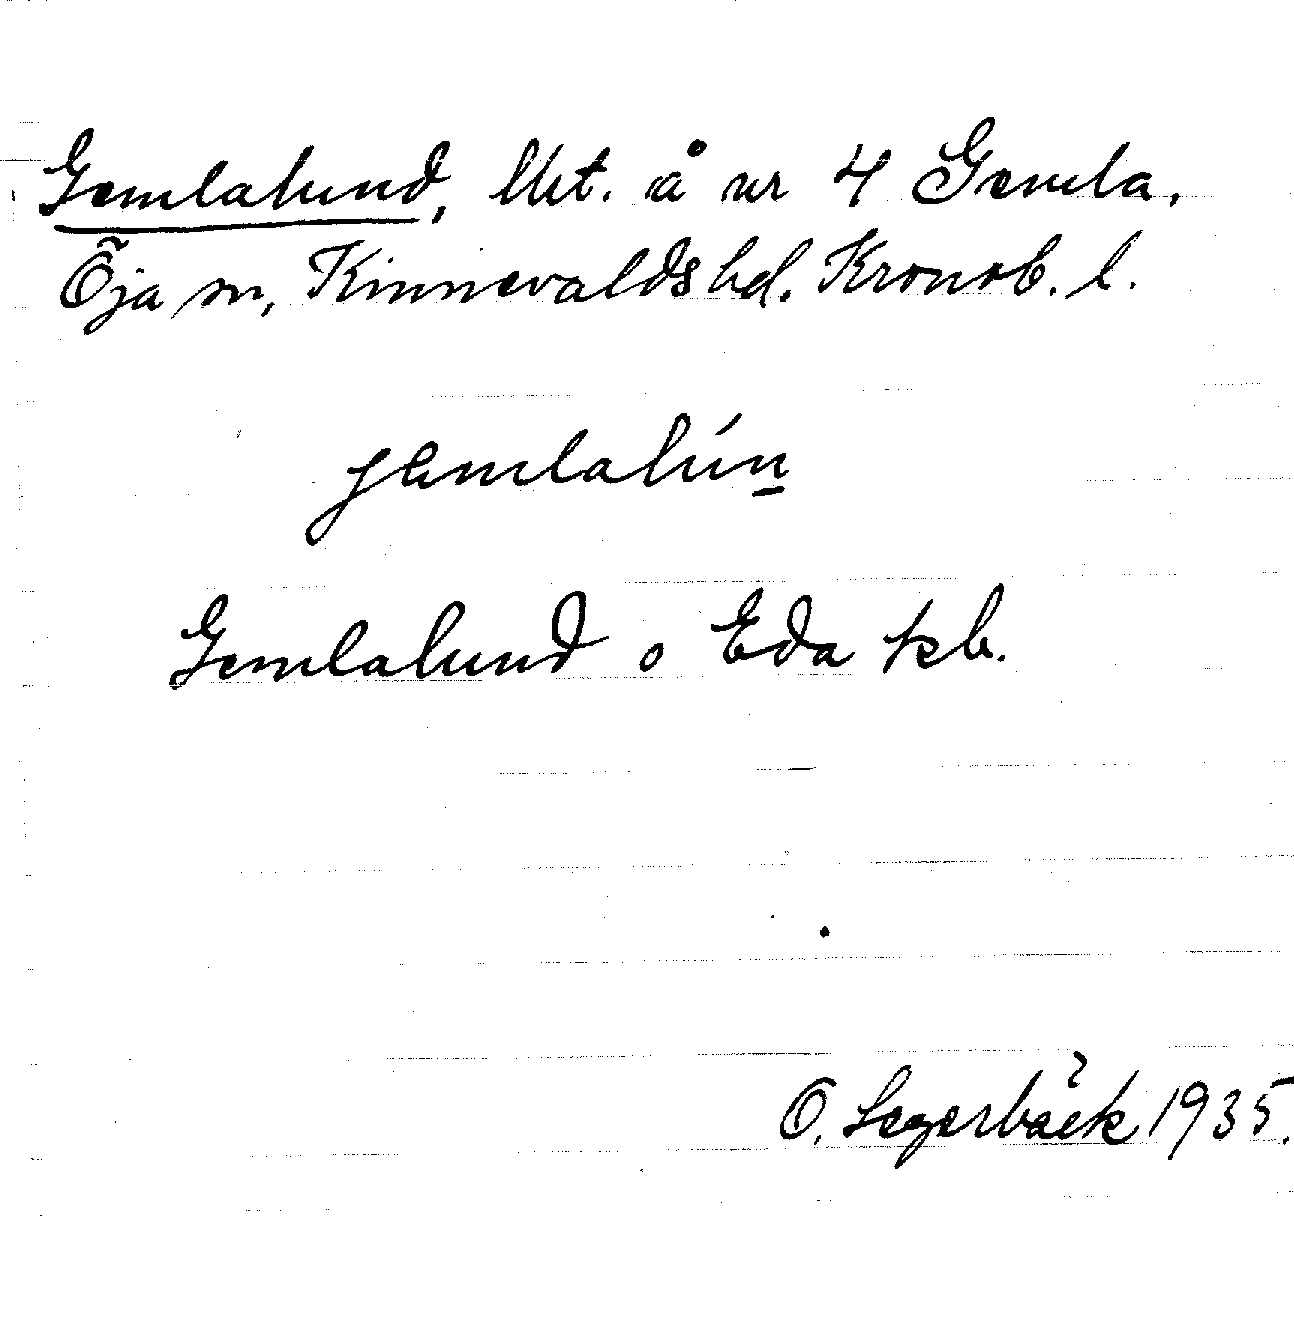 Gemlalund, lht. å nr 4 Gemla,
Öja sn, Kinnevalds hd. Kronob. l.
jæmlalún̲
Gemlalund o Eda tkb.
O. Segerbäck 1935.